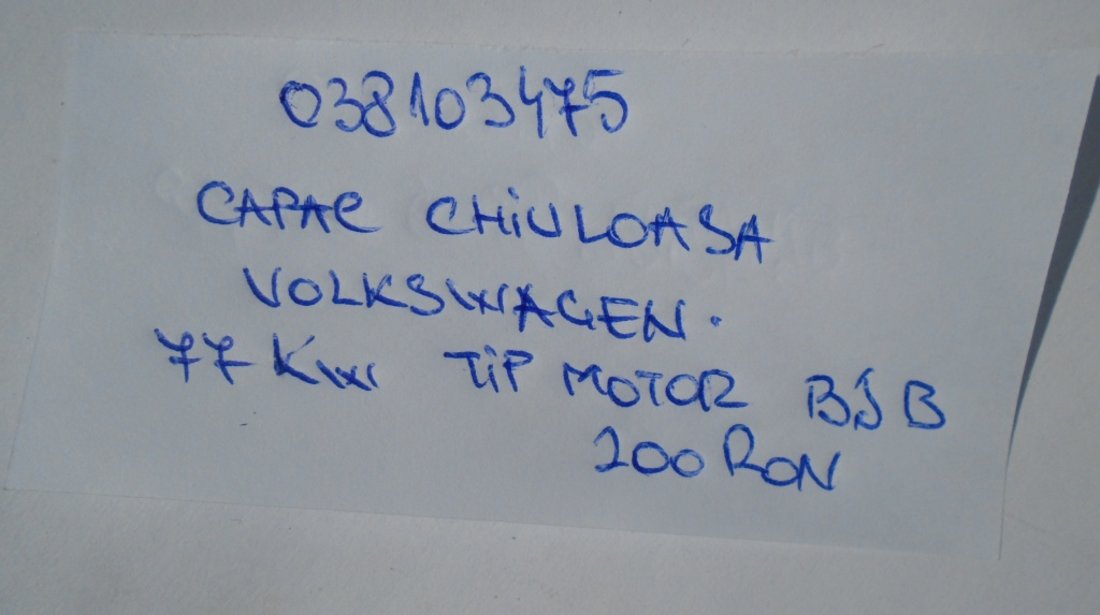 038103475
CAPAC CHiULOASA
VOLKSWAGEN.
77 Kw TiP MOTOR BJB
200 RON